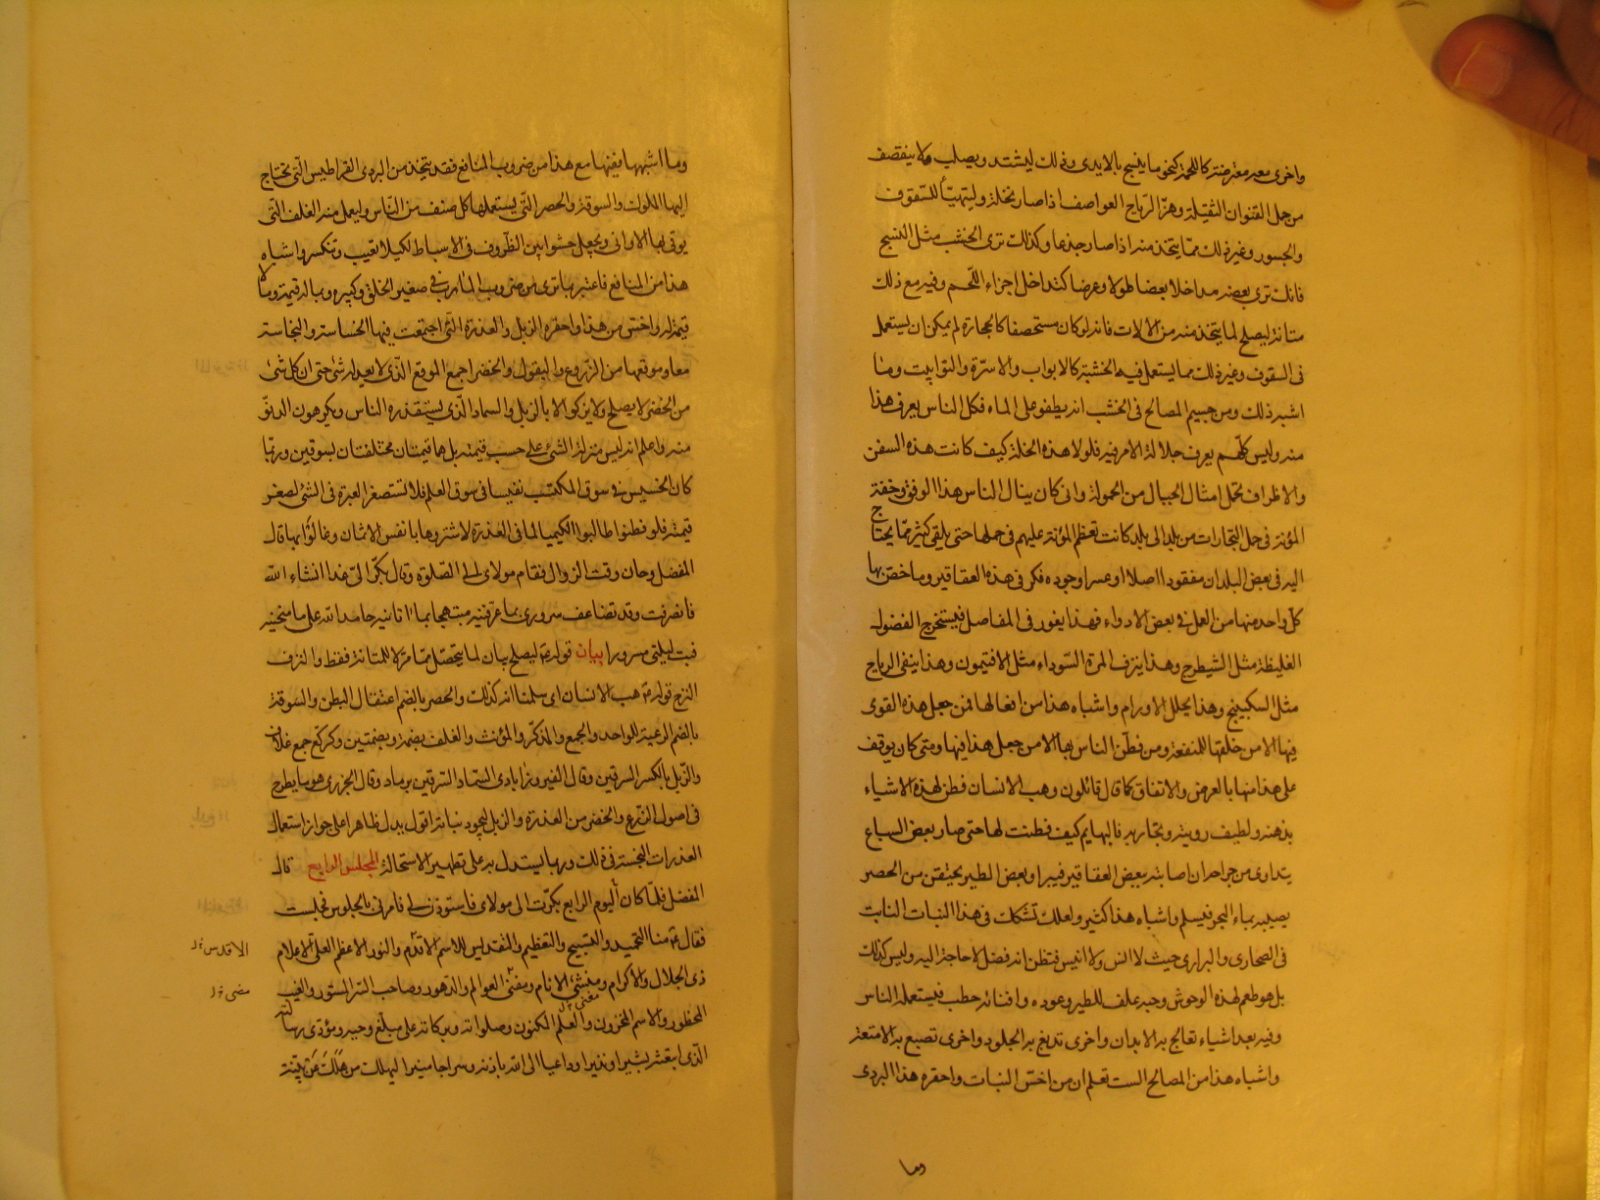 واخرى معه معترضة كاللحمة كنحو ما ينسج بالايدي وذلك ليشتد ويصلب ولا ينقصف
من حمل القنوان الثقيلة وهز الرياح العواصف اذا صار نخلة وليتهيأ للسقوف
والجسور وغير ذلك مما يتخذ منه اذا صار جذعا وكذلك ترى الخشب مثل النسج
فانك ترى بعضه مداخلا بعضا طولا وعرضا كتداخل اجزاء اللحم وفيه مع ذلك
متانة ليصلح لما يتخذ منه من الالات فانه لو كان مستحصفا كالحجارة لم يمكن ان يستعمل
في السقوف وغير ذلك مما يستعمل فيه الخشبة كالابواب والاسرة والتوابيت وما
اشبه ذلك ومن جسيم المصالح في الخشب انه يطفو على الماء فكل الناس يعرف هذا
منه وليس كلهم يعرف جلالة الامر فيه فلولا هذه الخلة كيف كانت هذه السفن
والاظراف تحمل امثال الجبال من الحمولة وانى كان ينال الناس هذا الوفق وخفة
المؤنة في حمل التجارات من بلد الى بلد وكانت تعظم المؤنة عليهم في حملها حتى يلقى كثير مما يحتاج
اليه في بعض البلدان مفقودا اصلا او عسر وجوده فكر في هذه العقاقير وما خص بها
كل واحد منها من العمل في بعض الادواء فهذا يغور في المفاصل فيستخرج الفضول
الغليظة مثل الشيطرج وهذا ينزف المرة السوداء مثل الافتيمون وهذا ينفى الرياح
مثل السكبينج وهذا يحلل الاورام واشباه هذا من افعالها فمن جعل هذه القوى
فيها الا من خلقها للمنفعة ومن فطن الناس بها الا من جعل هذا فيها ومتى كان يوقف
على هذا منها بالعرض والاتفاق كما قال قائلون وهب الانسان فطن لهذه الاشياء
بذهنه ولطيف رويته وتجاربه فالبهايم كيف فطنت لها حتى صار بعض السباع
يتداوى من جراحه ان اصابته ببعض العقاقير فيبرا وبعض الطير يحتقن من الحصر
يصيبه بماء البحر فيسلم واشباه هذا كثير ولعلك تشكك في هذا النبات النابت
في الصحارى والبرارى حيث لا انس ولا انيس فتظن انه فضل لا حاجة اليه وليس كذلك
بل هو طعم لهذه الوحوش وحبه علف للطير وعوده وافنانه حطب فيستعمله الناس
وفيه بعد اشياء تعالج به الابدان واخرى تدبغ به الجلود واخرى تصبغ به الامتعة
واشباه هذا من المصالح الست تعلم ان من اخس النبات واحقره هذا البردى
وما
وما اشبهها ففيها مع هذا من ضروب المنافع فقد يتخذ من البردى القراطيس التى يحتاج
اليها الملوك والسوقة والحصر التى يستعملها كل صنف من الناس وليعمل منه الغلف التى
يوقى بها الاوانى ويجعل حشوا بين الظروف فى الاسباط لكيلا تعيب وتنكسر واشباه
هذا من المنافع فاعتبر بما ترى من ضروب المارب فى صغير الخلق وكبيره وبما له قيمة وما لا
قيمة له واخس من هذا واحقره الزبل والعذرة التى اجتمعت فيها الخساسة والنجاسة
معا وموقعها من الزروع والبقول والخضر اجمع الموقع الذى لا يعدله شئ حتى ان كل شئ
من الخضر لا يصلح ولا يزكو الا بالزبل والسماد الذى يستقذره الناس ويكرهون الدنو
منه واعلم انه ليس منزلة الشئ على حسب قيمته بل هما قيمتان مختلفتان بسوقين وربما
كان الخسيس فى سوق المكتسب نفيسا فى سوق العلم فلا تستصغر العبرة فى الشئ لصغر
قيمته فلو فطنوا طالبوا الكيميا لما فى العذرة لاشتروها بانفس الاثمان وغالوا بها قال
المفضل وحان وقت الزوال فقام مولاى الى الصلوة وقال بكر الى غدا انشاء الله
فانصرفت وقد تضاعف سرورى بما عرفنيه مبتهجا بما اتانيه حامدا لله على ما منحنيه
فبت ليلتى مسرورا بيان قوله ع ليصلح بيان لما يتحصل مما مر لا للمتانة فقط والنزف
النزح قوله ع هب الانسان اى سلمنا انه كذلك والحصر بالضم اعتقال البطن والسوقة
بالضم الرعية للواحد والجمع والمذكر والمؤنث والغلف بضمة وبضمتين وكركع جمع غلاف
والزبل بالكسر السرقين وقال الفيروزابادى السماد السرقين برماد وقال الجزرى هو ما يطرح
فى اصول الزرع والخضر من العذرة والزبل ليجود نباته اقول يدل ظاهرا على جواز استعمال
العذرات النجسة فى ذلك وربما يستدل به على تطهير الاستحالة المجلس الرابع قال
المفضل فلما كان اليوم الرابع بكرت الى مولاى فاستوذن لى فامرنى بالجلوس فجلست
فقال ع منا التحميد والتسبيح والتعظيم والتقديس للاسم الاقدم والنور الاعظم العلى العلام
الاقدس خ ل
ذى الجلال والاكرام ومنشئ الانام ومفنى العوالم والدهور وصاحب السر المستور والغيب
مفنى خ ل
المحظور والاسم المخزون والعلم المكنون وصلواته وبركاته على مبلغ وحيه ومؤدى رسالته
الذى ابتعثه بشيرا ونذيرا وداعيا الى الله باذنه وسراجا منيرا ليهلك من هلك عن بينة